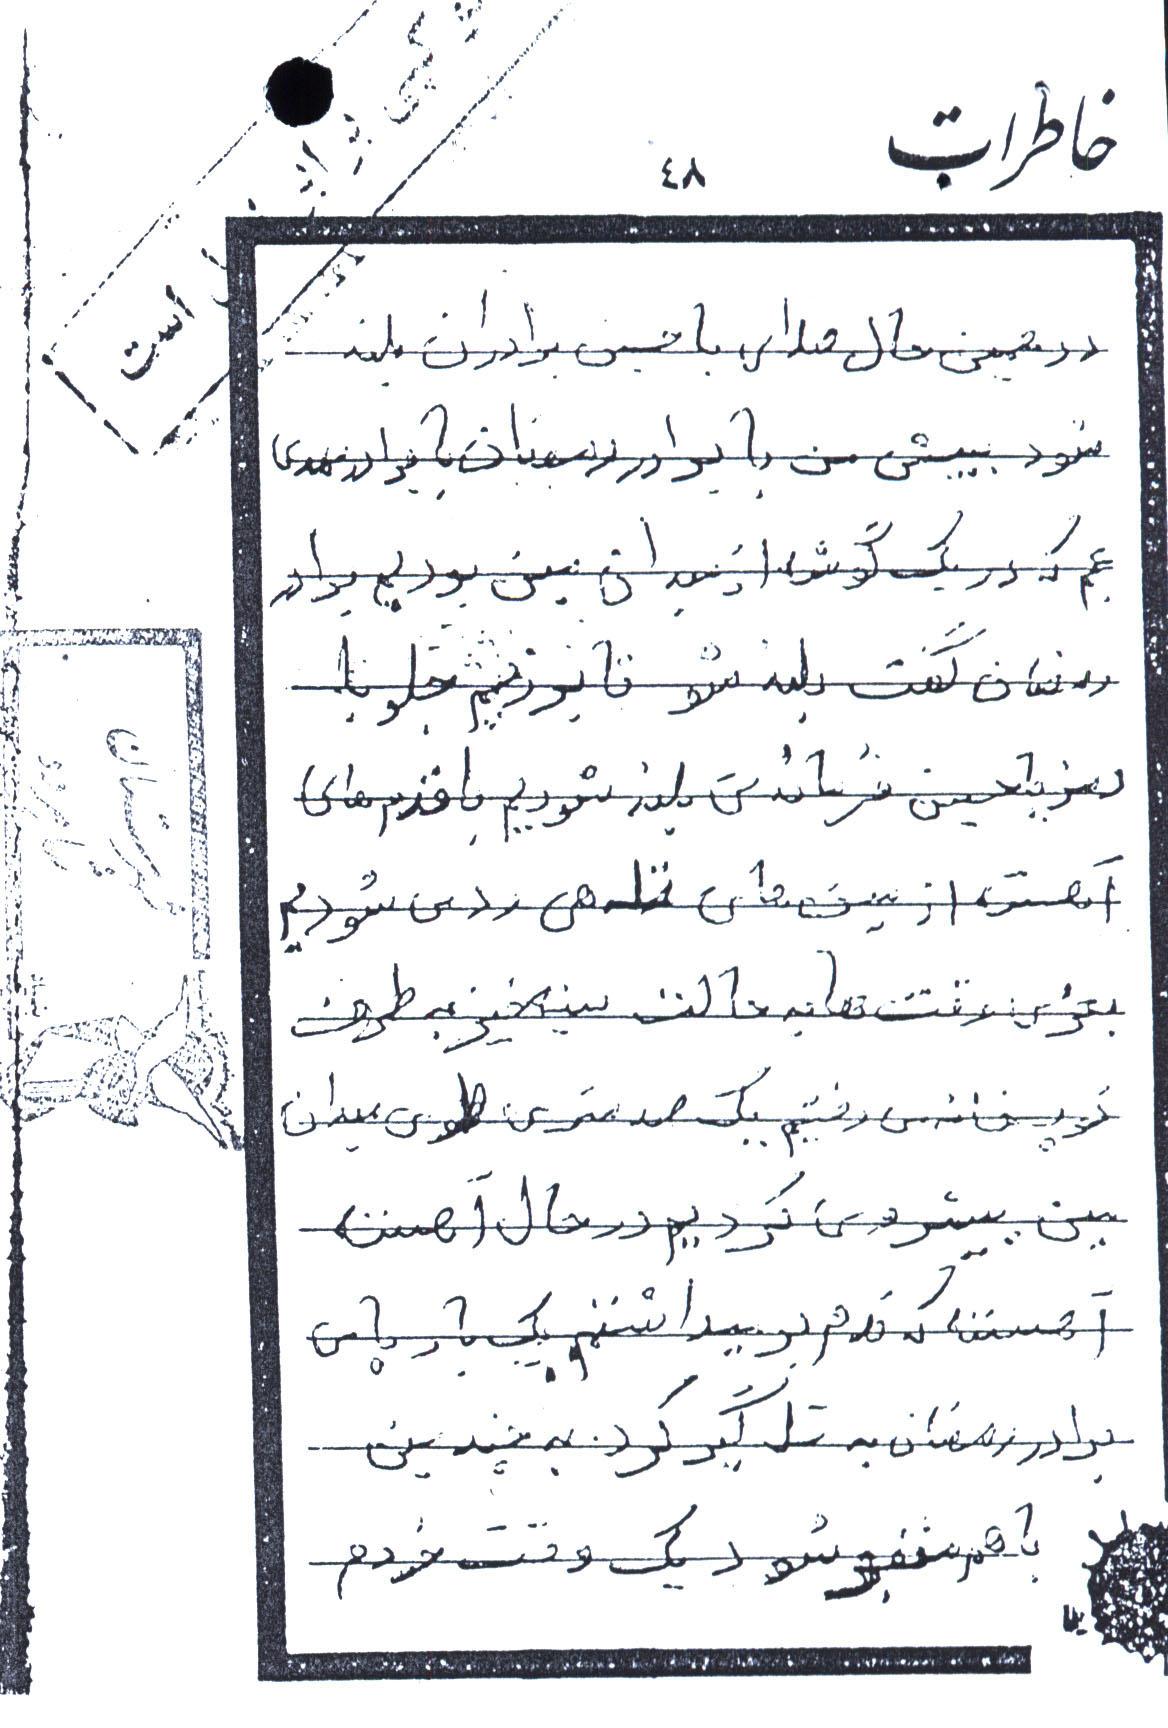 خاطرات
٤٨
است
در همین حال صدای یا حسین برادران بلند
شود پیش من با برادر رمضان با برادر مهدی
عم که در یک گوشه از میدان مین بودیم برادر
رمضان گفت بلند شو تا بو زنیم جلو با
رمز یا حسین فرماندهی بلند شودیم با قدم های
آهسته از مین های تله هی رد می شودیم
بعضی وقت ها به حالت سینه خیز به طرف
توپخانه می رفتیم یک صد متری طوی میدان
مین پیشروی کردیم در حال آهسته
آهسته که قدم بر میداشتم یک بار پای
برادر رمضان به تله گیر کرد به چند مین
با هم منفجر شود یک وقت خودم